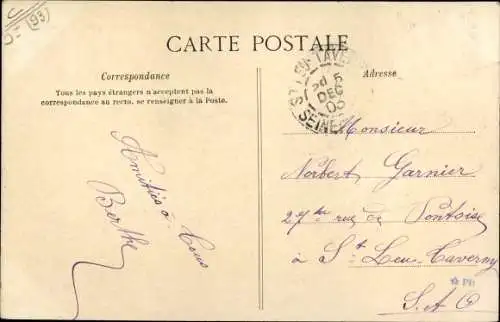 (93)
CARTE POSTALE
Correspondance
Tous les pays étrangers n'acceptent pas la
correspondance au recto, se renseigner à la Poste.
Amitiés à Tous
Berthe
Adresse
ST LEU-TAVERNY
5
DEC
05
SEINE
Monsieur
Norbert Garnier
27 rue de Pontoise
à St Leu-Taverny
S. & O